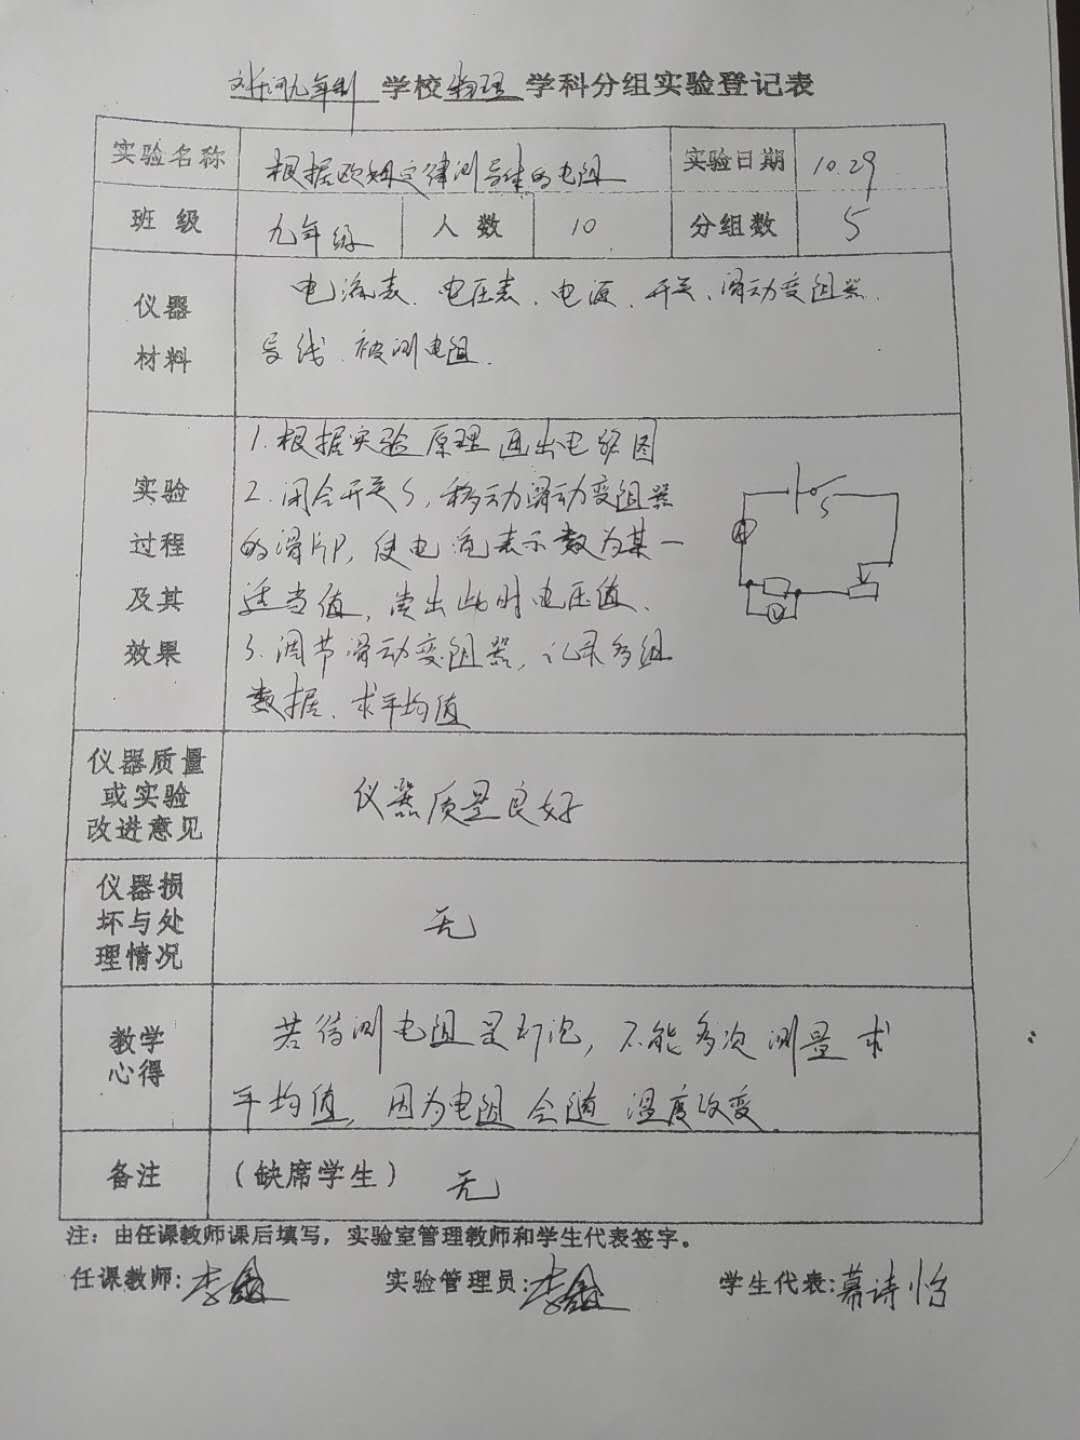 九年制 学校 物理 学科分组实验登记表
实验名称 根据欧姆定律测导体的电阻 实验日期 10.29
班级 九年级 人数 10 分组数 5
仪器材料 电流表、电压表、电源、开关、滑动变阻器、
导线、被测电阻.
实验过程及其效果
1.根据实验原理画出电路图
2.闭合开关S,移动滑动变阻器
的滑片P,使电流表示数为某一
适当值,读出此时电压值、
3.调节滑动变阻器,记录多组
数据、求平均值
S
A
V
仪器质量
或实验
改进意见
仪器质量良好
仪器损
坏与处
理情况
无
教学
心得
若待测电阻是灯泡,不能多次测量求
平均值,因为电阻会随温度改变.
备注 (缺席学生) 无
注:由任课教师课后填写,实验室管理教师和学生代表签字。
任课教师:李 实验管理员:李 学生代表:慕诗怡